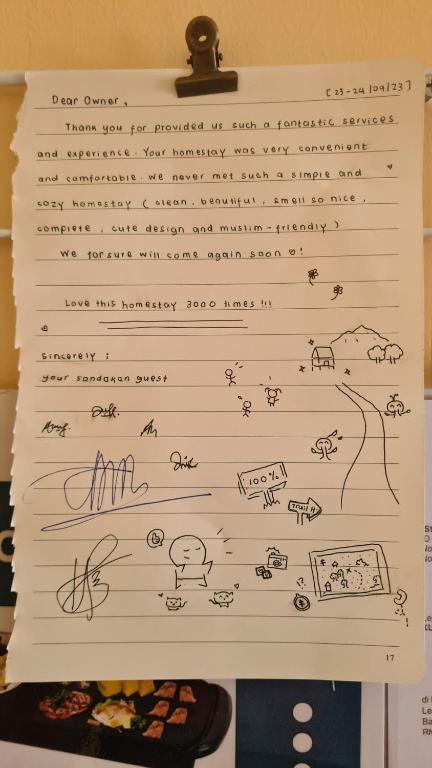 [23-24/09/23]
Dear Owner,
Thank you for provided us such a fantastic services
and experience. Your homestay was very convenient
and comfortable. We never met such a simple and
cozy homestay (clean, beautiful, smell so nice,
complete, cute design and muslim-friendly)
We forsure will come again soon ♡!
Love this homestay 3000 times!!!
Sincerely :
your sandakan guest
100%
Trail
17
di
Le
Ba
RM